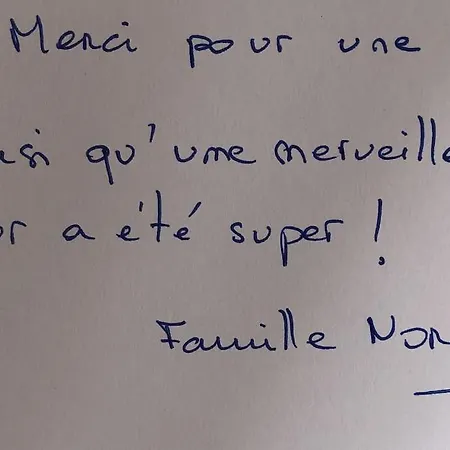 Merci pour une
si qu'une merveille
r a été super !
Famille Nor